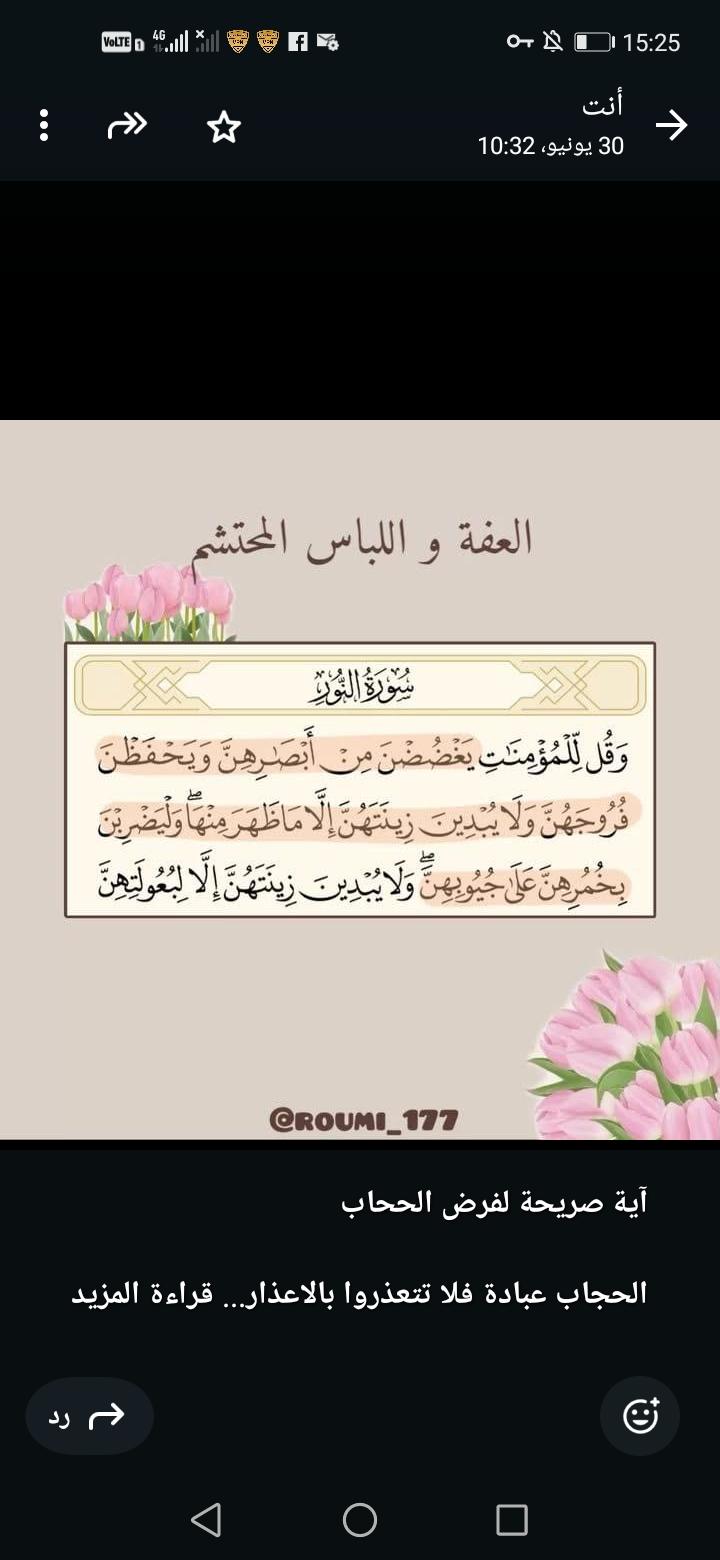 VoLTE 4G 15:25
أنت
30 يونيو، 10:32
العفة و اللباس المحتشم
سُورَةُ النُّورِ
وَقُل لِّلْمُؤْمِنَٰتِ يَغْضُضْنَ مِنْ أَبْصَٰرِهِنَّ وَيَحْفَظْنَ
فُرُوجَهُنَّ وَلَا يُبْدِينَ زِينَتَهُنَّ إِلَّا مَا ظَهَرَ مِنْهَا ۖ وَلْيَضْرِبْنَ
بِخُمُرِهِنَّ عَلَىٰ جُيُوبِهِنَّ ۖ وَلَا يُبْدِينَ زِينَتَهُنَّ إِلَّا لِبُعُولَتِهِنَّ
@ROUMI_177
آية صريحة لفرض الححاب
الحجاب عبادة فلا تتعذروا بالاعذار... قراءة المزيد
رد